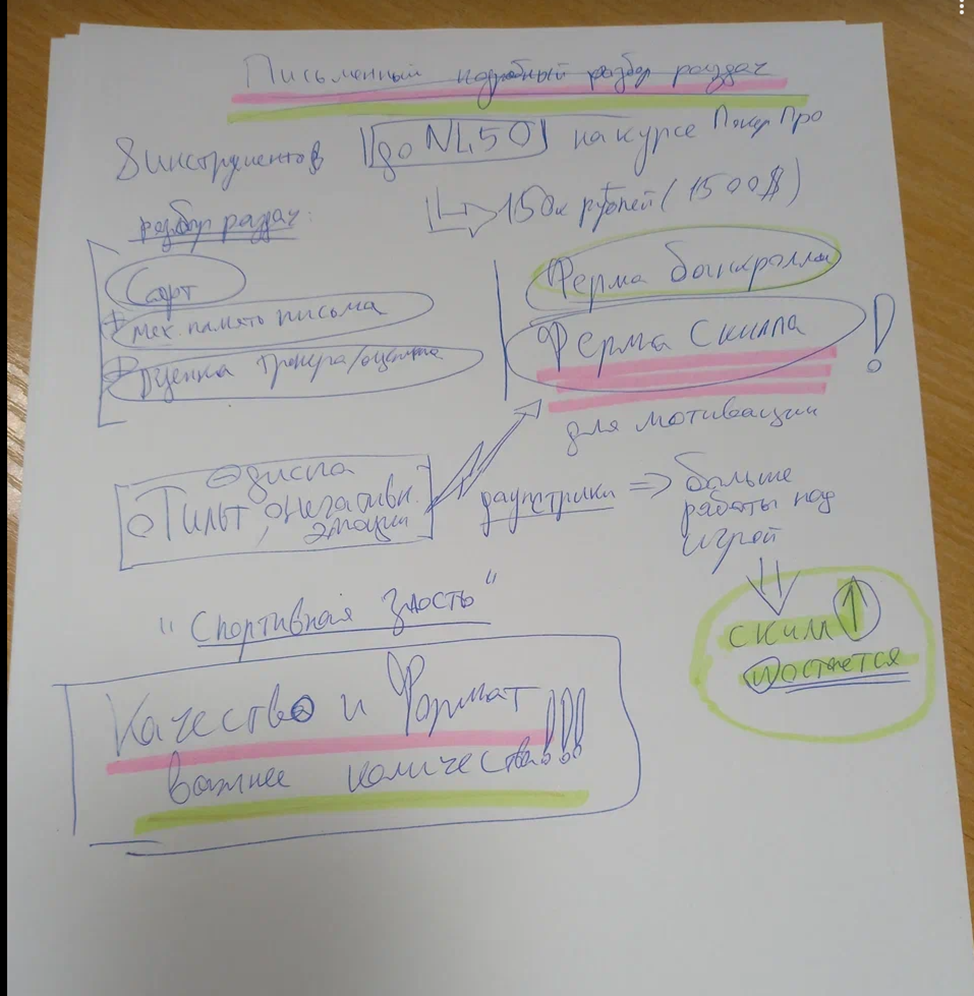 Письменный подробный разбор раздач
8 инструментов до NL50 на курсе Покер Про
150к рублей (1500$)
разбор раздач:
Софт
+ мех. память письма
+ оценка тренера/
Ферма банкролла
Ферма Скилла !
для мотивации
Тильт, негативн.
эмоции
даунстрики => больше
работы над
игрой
скилл ↑
и остается
"Спортивная злость"
Качество и Формат
важнее количества!!!